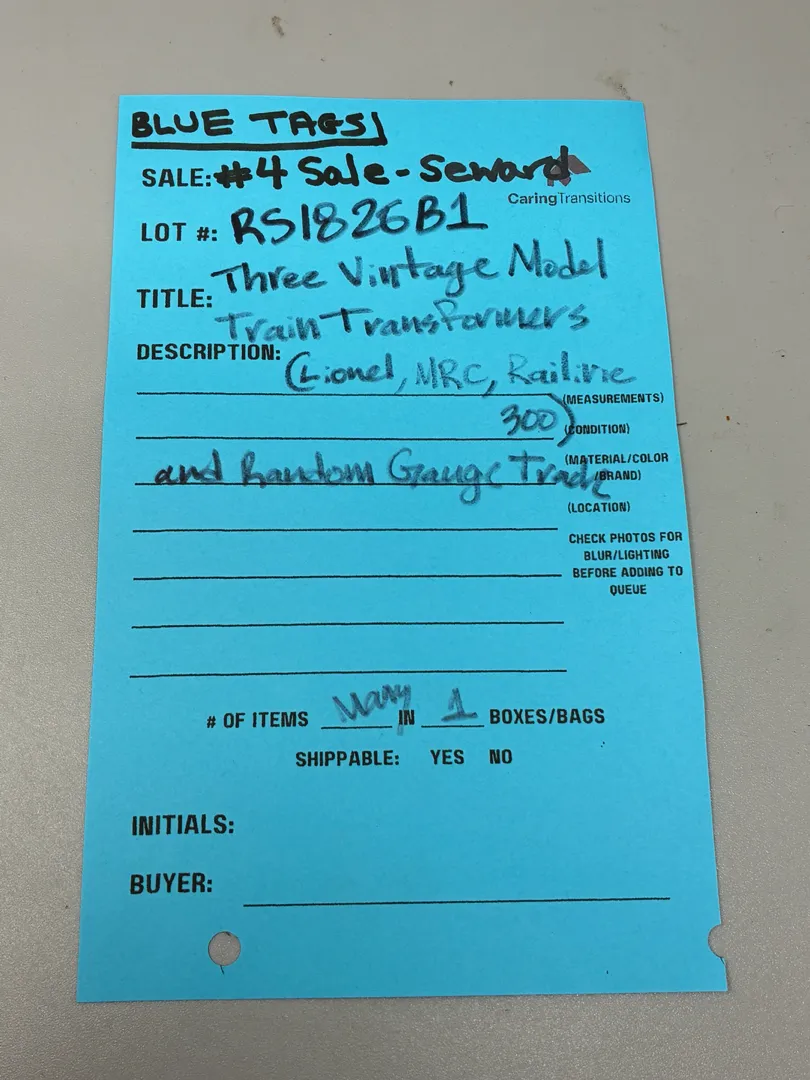 BLUE TAGS
SALE: #4 Sale - Seward
CaringTransitions
LOT #: RS1826B1
TITLE: Three Vintage Model
Train Transformers
DESCRIPTION: (Lionel, MRC, Railine
(MEASUREMENTS)
300)
(CONDITION)
and Random Gauge Track
(MATERIAL/COLOR
/BRAND)
(LOCATION)
CHECK PHOTOS FOR
BLUR/LIGHTING
BEFORE ADDING TO
QUEUE
# OF ITEMS Many IN 1 BOXES/BAGS
SHIPPABLE: YES NO
INITIALS:
BUYER: